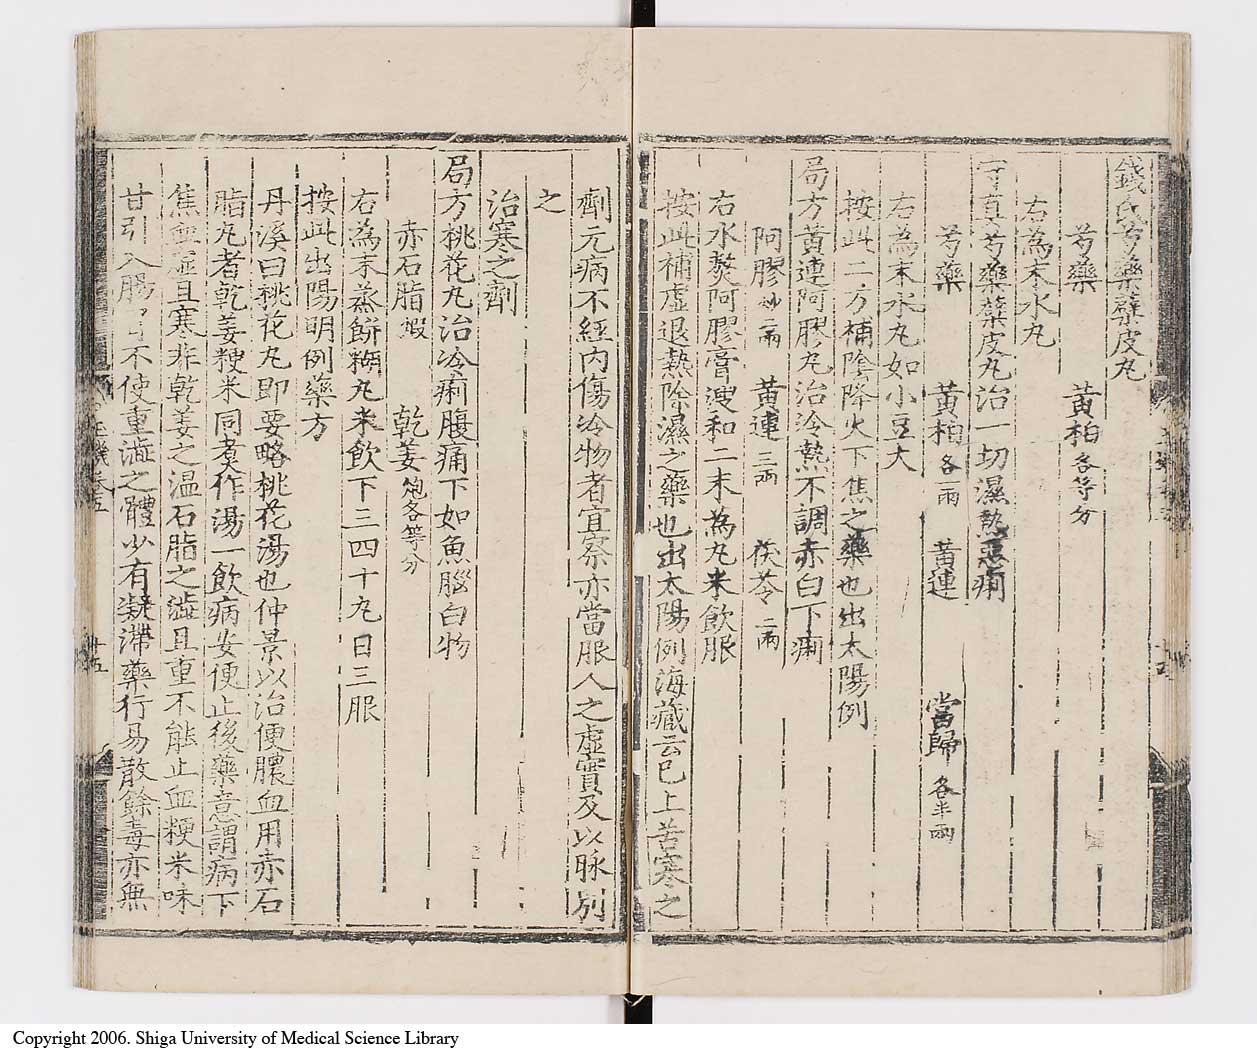 錢氏芍藥蘗皮丸
芍藥　黃柏各等分
右為末水丸
守真芍藥蘗皮丸治一切濕熱惡痢
芍藥　黃柏各一兩　黃連　當歸各半兩
右為末水丸如小豆大
按此二方補陰降火下焦之藥也出太陽例
局方黃連阿膠丸治冷熱不調赤白下痢
阿膠炒一兩　黃連三兩　茯苓二兩
右水熬阿膠膏溲和二末為丸米飲服
按此補虛退熱除濕之藥也出太陽例海藏云已上苦寒之
劑元病不經內傷冷物者宜察亦當服人之虛實及以脉別
之
治寒之劑
局方桃花丸治冷痢腹痛下如魚腦白物
赤石脂煅　乾姜炮各等分
右為末蒸餅糊丸米飲下三四十丸日三服
按此出陽明例藥方
丹溪曰桃花丸即要略桃花湯也仲景以治便膿血用赤石
脂丸者乾姜粳米同煮作湯一飲病安便止後藥意謂病下
焦血虛且寒非乾姜之温石脂之澁且重不能止血粳米味
甘引入腸胃不使重澁之體少有凝滯藥行易散餘毒亦無
卷五
廿五
Copyright 2006. Shiga University of Medical Science Library